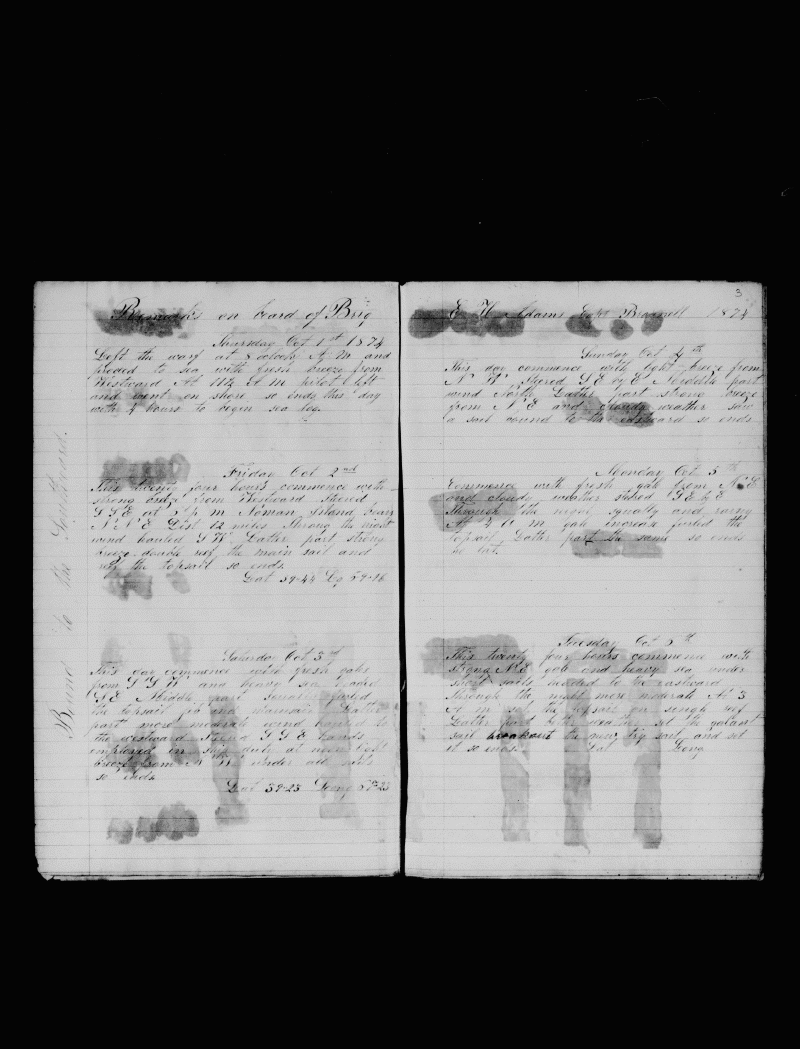 Remarks on board of Brig
Thursday Oct 1st 1874
Left the warf at 8 oclock A M and
proded to sea with fresh breeze from
Westward At 11½ A m pilot left
and went on shore so ends this day
with 4 hours to begin sea log
Friday Oct 2nd
This twenty four hours commence with
strong breeze from Westward stered
S S E at 5 p m Noman Island bear
N N E Dist 12 miles throug the night
wind hauled S W Latter part strong
breeze double reef the main sail and
reef the topsail so ends
Lat 39-44 Lg 69-
Saturday Oct 3rd
This day commence with fresh gale
from S S W and heavy sea headed
S E Middle part furled
the topsail jib and mainsail Latter
part more moderate wind hauled to
the westward Stered S S E hands
employed in ships duty at noon light
breeze from N W under all sails
so ends
Lat 39-23 Long 69-23
Bound to the Southward.
3
E. H. Adams Capt Brownell 1874
Sunday Oct 4th
This day commence with light breeze from
N W Stered S E by E Middle part
wind North Latter part strong breeze
from N E and cloudy weather saw
a sail bound to the eastward so ends
Monday Oct 5th
Commence with fresh gale from N E
and cloudy weather stered S E by E
through the night squally and rainy
At 4 A m gale increase furled the
topsail Latter part the same so ends
no lat
Tuesday Oct 6th
This twenty four hours commence with
strong N E gale and heavy sea under
short sails headed to the eastward
through the night more moderate At 3
A m set the topsail on single reef
Latter part better weather set the galant
sail breakout the new try sail and set
it so ends Lat Long